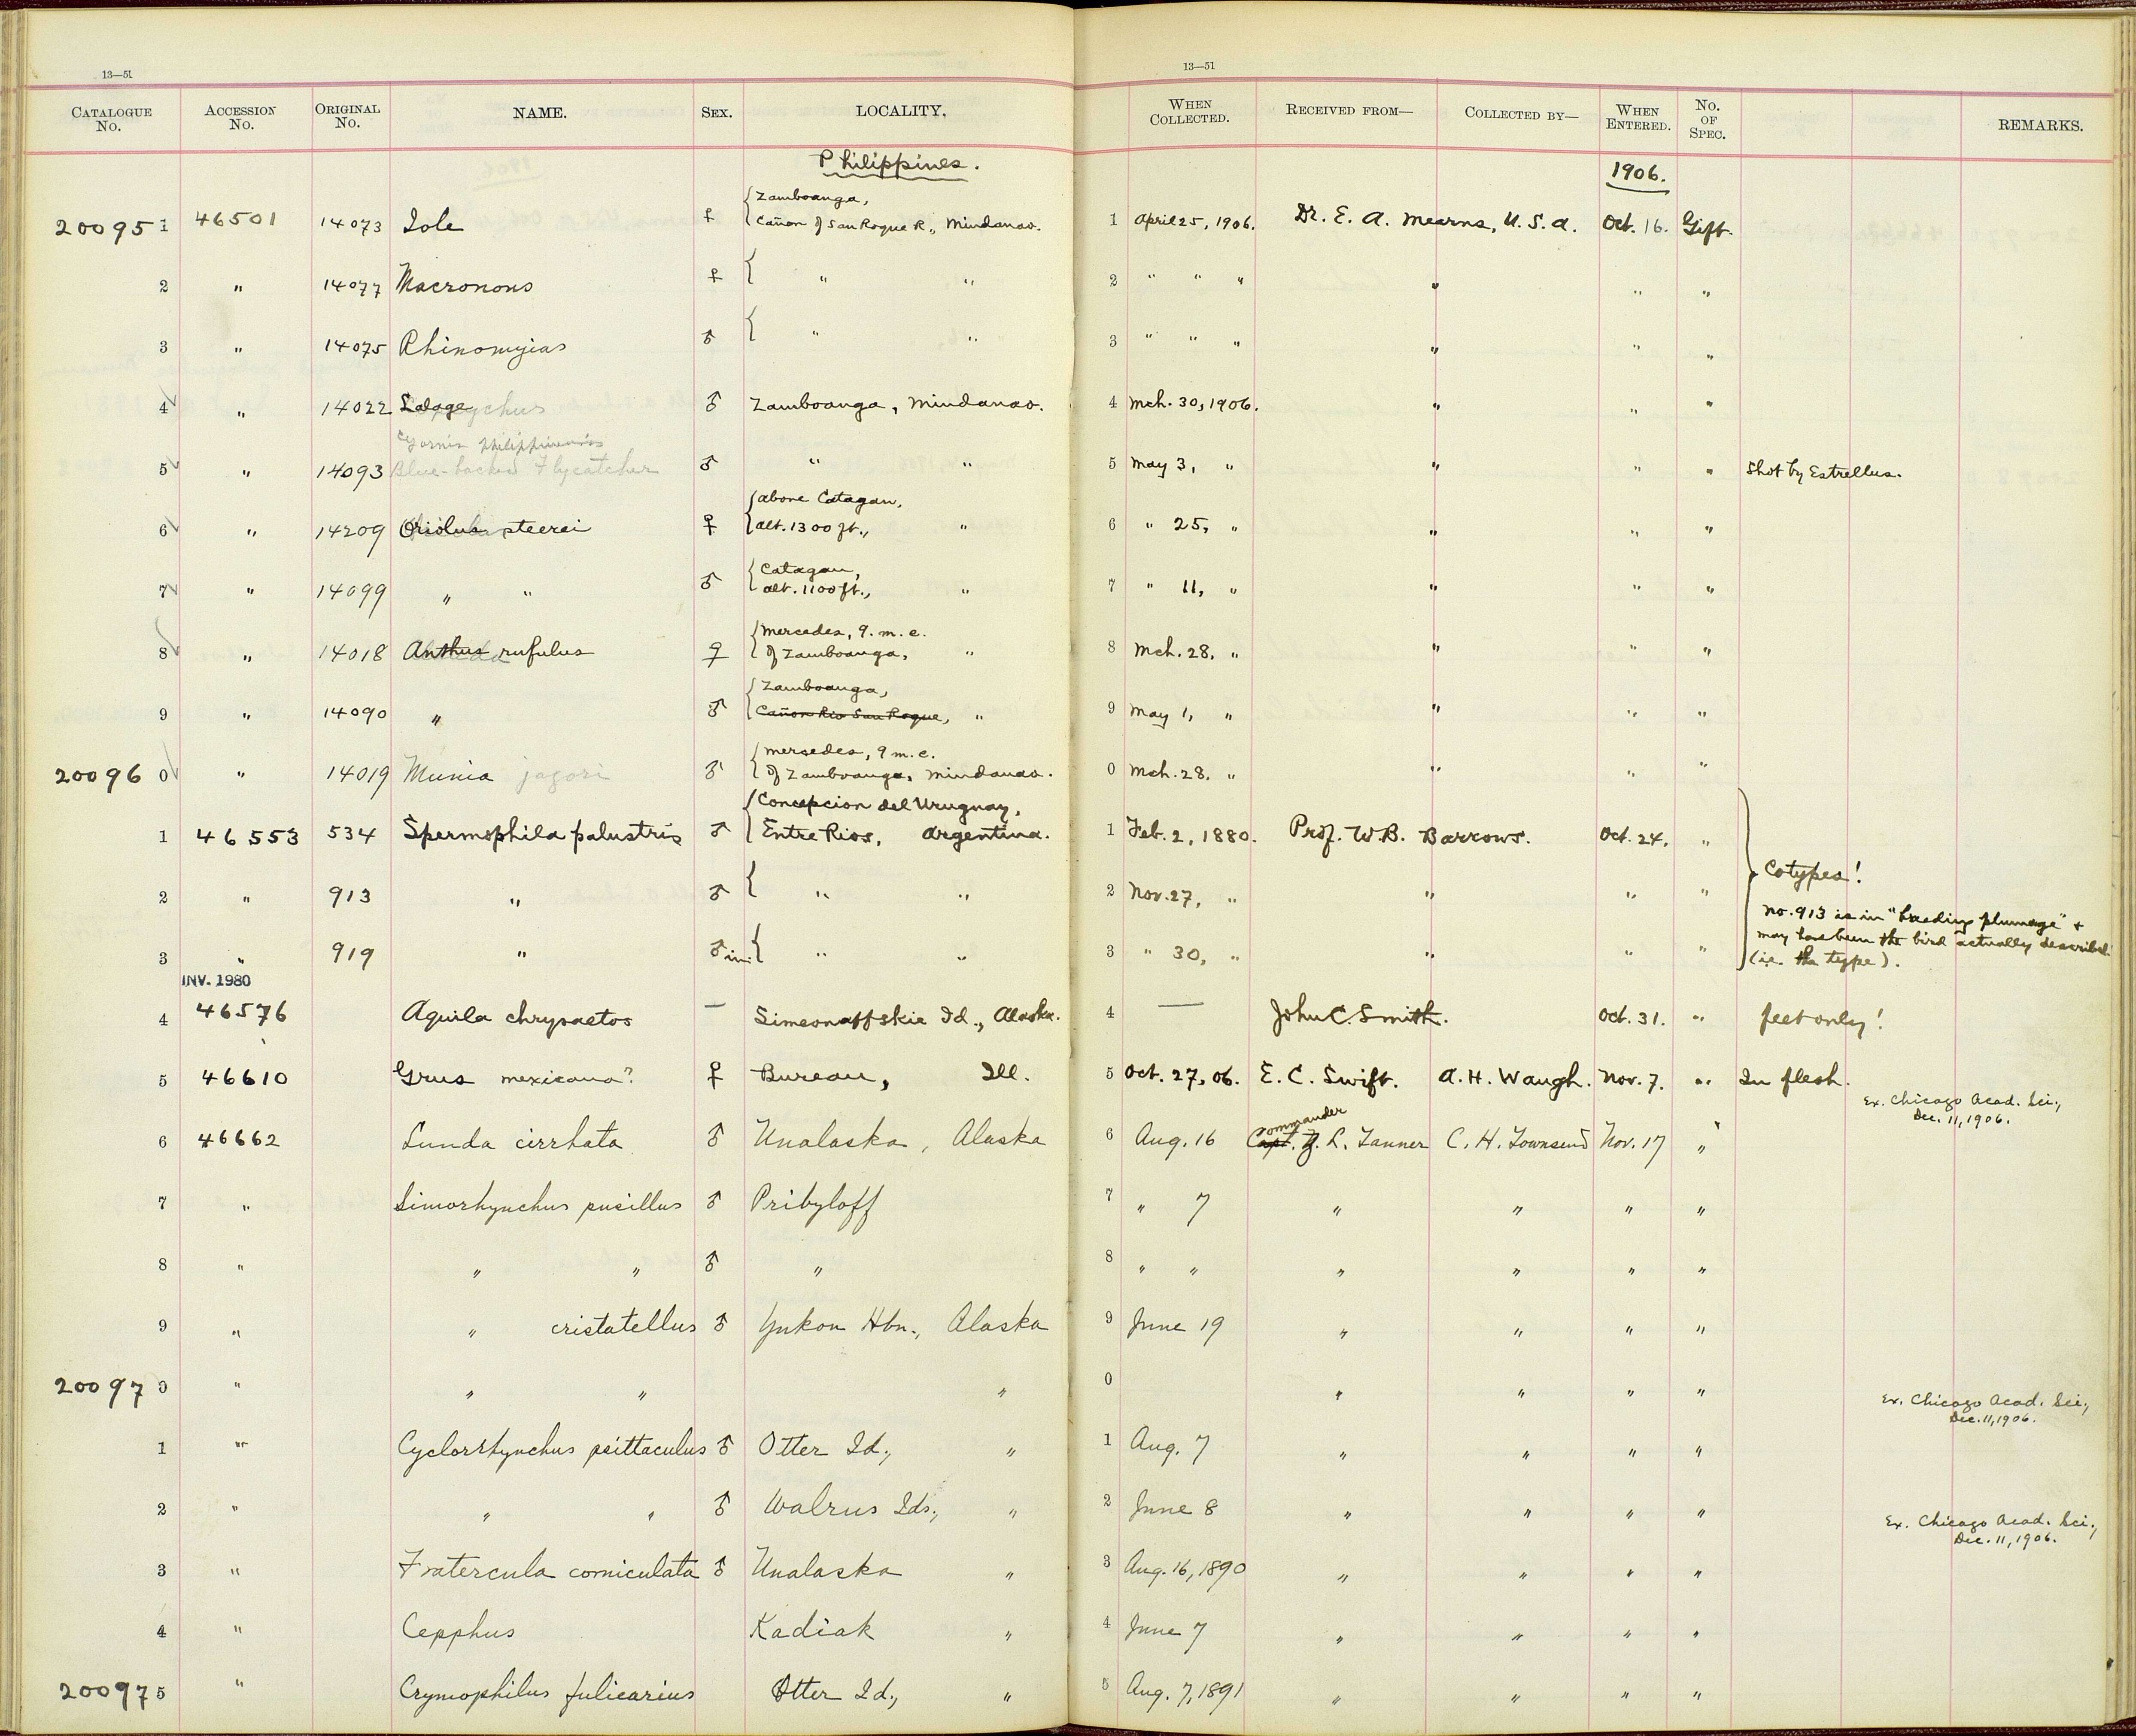 13—51
13—51
CATALOGUE No. ACCESSION No. ORIGINAL No. NAME. SEX. LOCALITY. WHEN COLLECTED. RECEIVED FROM— COLLECTED BY— WHEN ENTERED. No. OF SPEC. REMARKS.
Philippines. 1906.
Zamboanga,
200951 46501 14073 Iole ♀ Cañon of San Roque R., Mindanao. 1 April 25, 1906. Dr. E. A. Mearns, U.S.A. Oct. 16. Gift.
2 " 14077 Macronous ♀ " " 2 " " " " " "
3 " 14075 Rhinomyias ♂ " " 3 " " " " " "
4 " 14022 Lalage ♂ Zamboanga, Mindanao. 4 Mch. 30, 1906. " " "
Cyornis philippinensis
5 " 14093 Blue-backed Flycatcher ♂ " " 5 May 3, " " " " Shot by Estrellus.
above Catagan,
6 " 14209 Oriolus steerei ♀ alt. 1300 ft., " 6 " 25, " " " "
Catagan,
7 " 14099 " " ♂ alt. 1100 ft., " 7 " 11, " " " "
Mercedes, 9. m. e.
8 " 14018 Anthus rufulus ♀ of Zamboanga, " 8 Mch. 28, " " " "
Zamboanga,
9 " 14090 " ♂ Cañon Rio San Roque, " 9 May 1, " " " "
Mercedes, 9 m. e.
200960 " 14019 Munia jagori ♂ of Zamboanga, Mindanao. 0 Mch. 28. " " " "
Concepcion del Uruguay,
1 46553 534 Spermophila palustris ♂ Entre Rios, Argentina. 1 Feb. 2, 1880. Prof. W.B. Barrows. Oct. 24. "
2 " 913 " ♂ " " 2 Nov. 27, " " " " Cotypes!
No. 913 is in "breeding plumage" +
may have been the bird actually described
3 " 919 " ♂ im. " " 3 " 30, " " " " (i.e. the type).
INV. 1980
4 46576 Aquila chrysaetos — Simeonoffskie Id., Alaska. 4 — John C. Smith. Oct. 31. " feet only!
5 46610 Grus mexicana? ♀ Bureau, Ill. 5 Oct. 27, 06. E. C. Swift. A. H. Waugh. Nov. 7. " In flesh.
Ex. Chicago Acad. Sci.,
Dec. 11, 1906.
Commander
6 46662 Lunda cirrhata ♂ Unalaska, Alaska 6 Aug. 16 Capt. Z. L. Tanner C. H. Townsend Nov. 17 "
7 " Simorhynchus pusillus ♂ Pribyloff 7 " 7 " " " "
8 " " " ♂ " 8 " " " " " "
9 " " cristatellus ♂ Yukon Hbr., Alaska 9 June 19 " " " "
200970 " " " " 0 " " " "
Ex. Chicago Acad. Sci.,
Dec. 11, 1906.
1 " Cyclorrhynchus psittaculus ♂ Otter Id., " 1 Aug. 7 " " " "
2 " " " ♂ Walrus Ids., " 2 June 8 " " " "
Ex. Chicago Acad. Sci.,
Dec. 11, 1906.
3 " Fratercula corniculata ♂ Unalaska " 3 Aug. 16, 1890 " " " "
4 " Cepphus Kadiak " 4 June 7 " " " "
200975 " Crymophilus fulicarius Otter Id., " 5 Aug. 7, 1891 " " " "